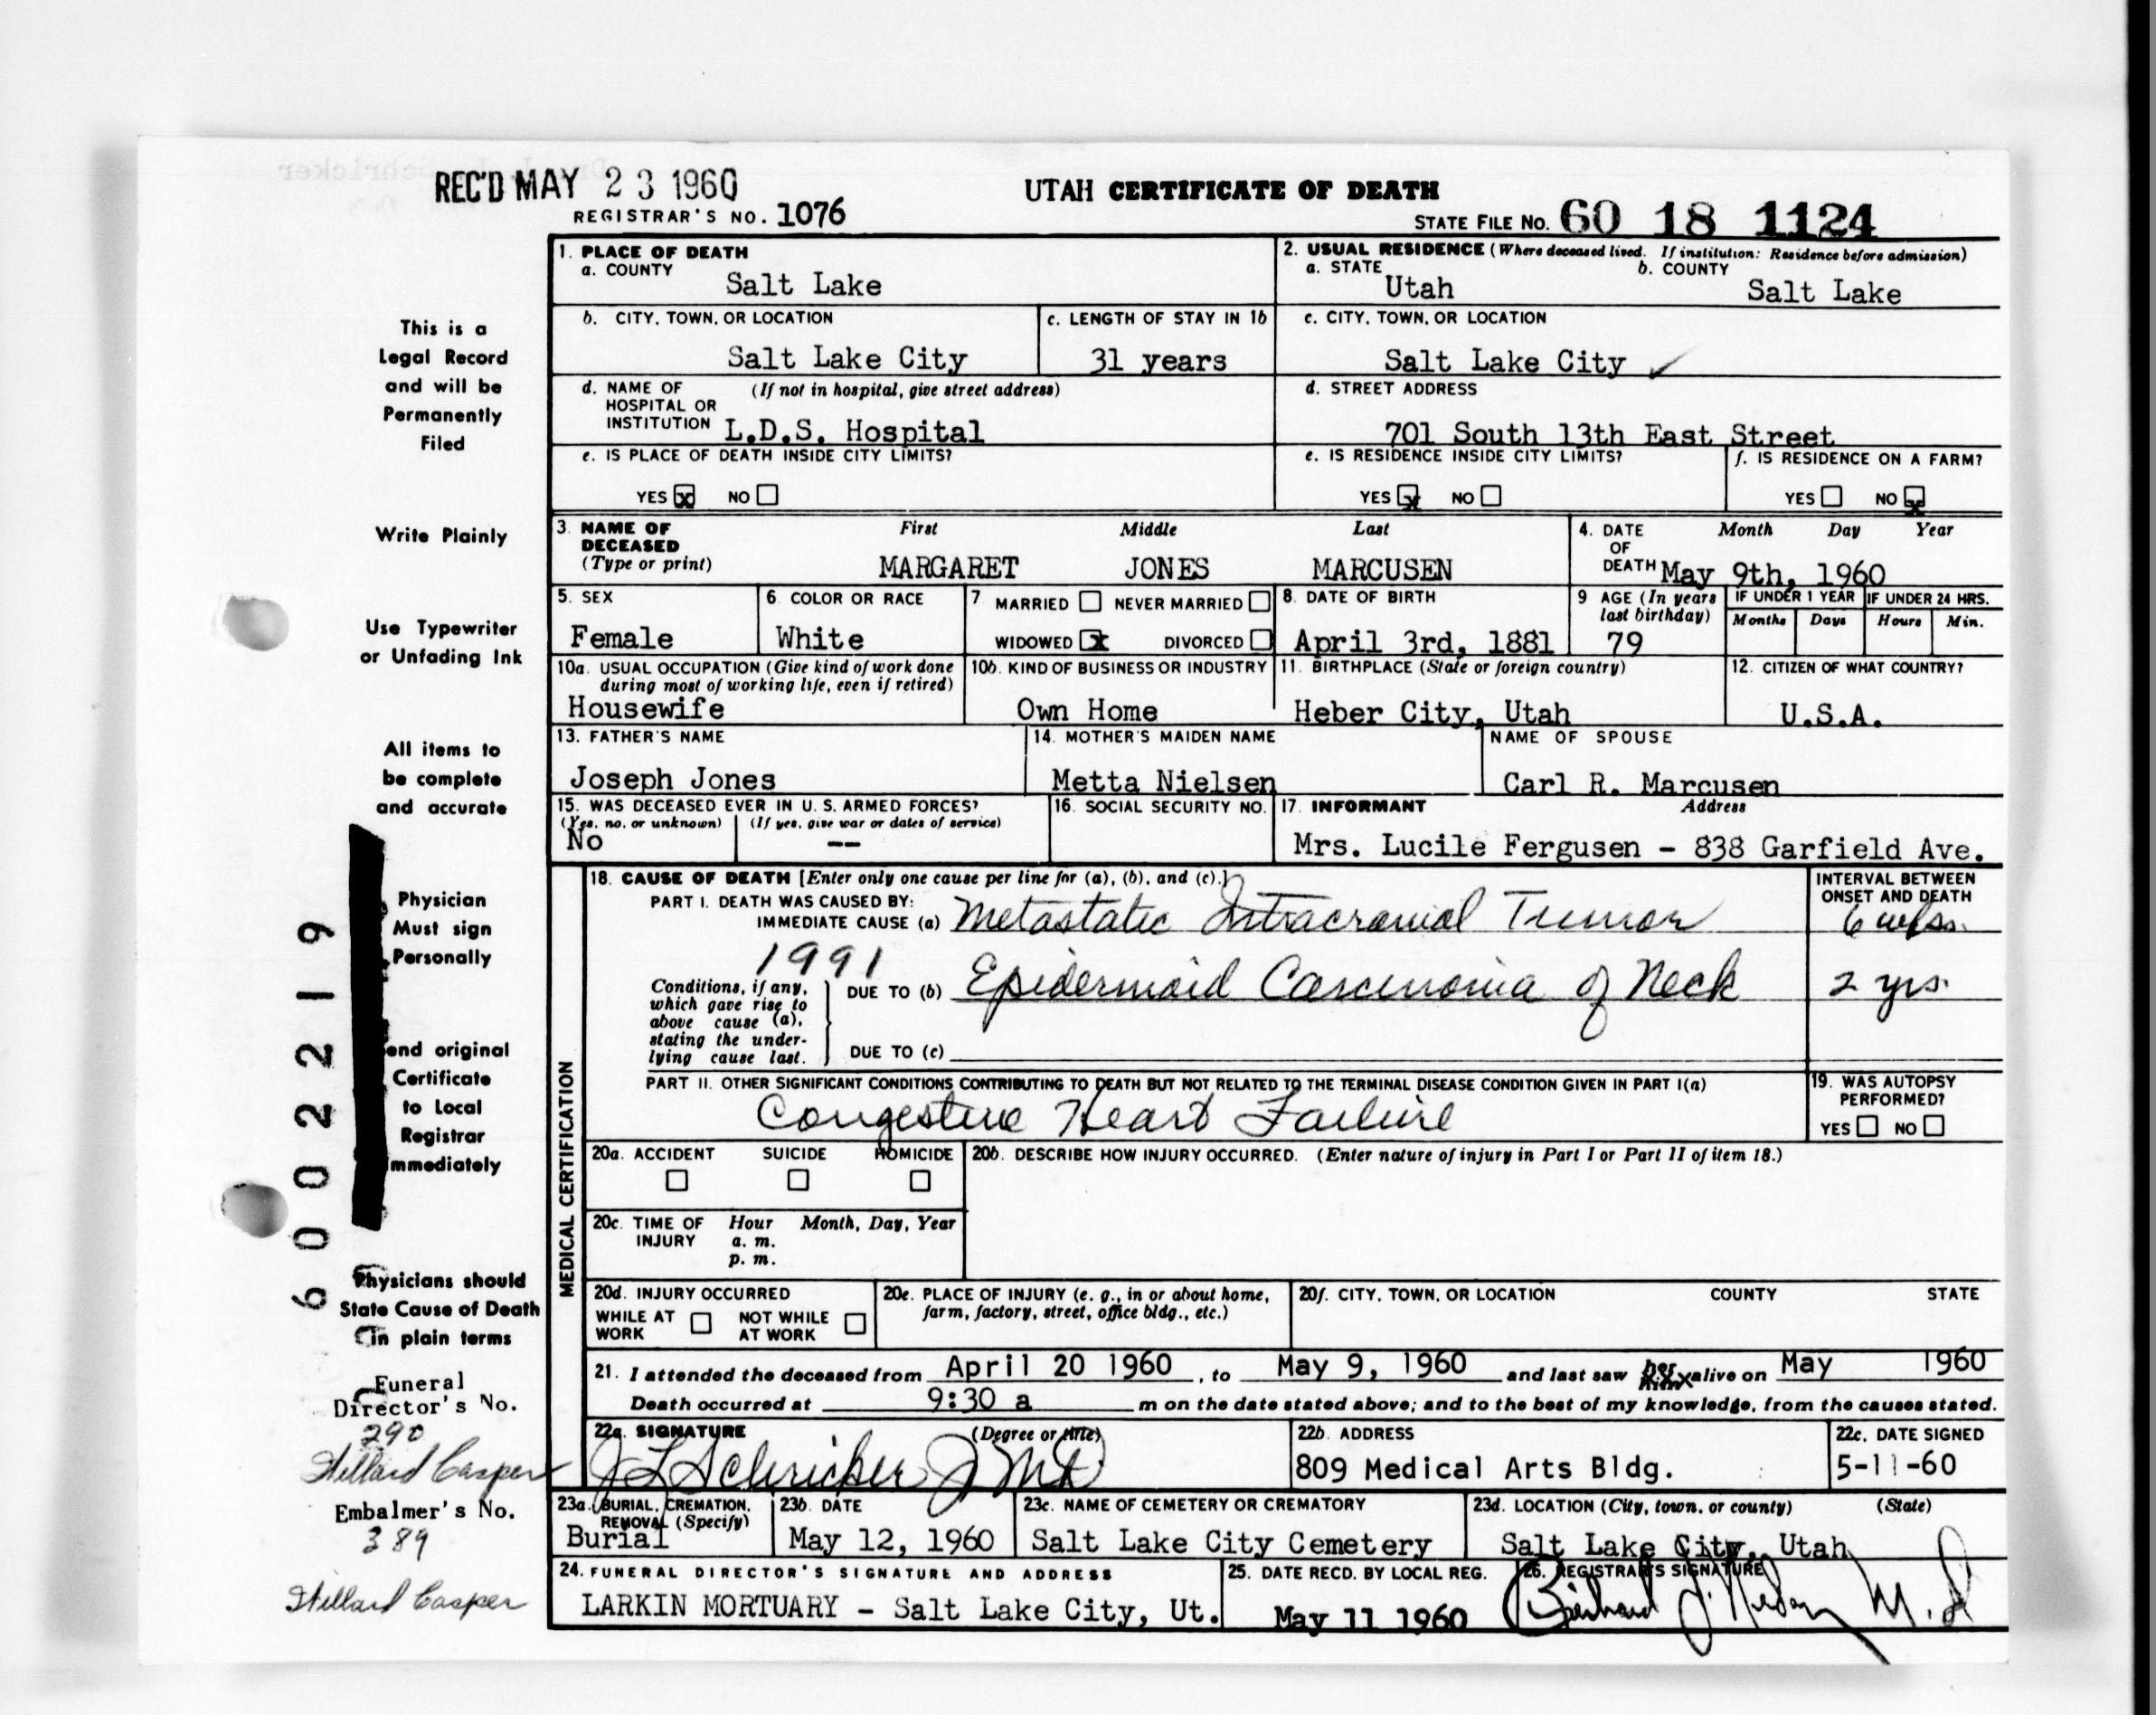 REC'D MAY 23 1960
UTAH CERTIFICATE OF DEATH
REGISTRAR'S NO. 1076
STATE FILE NO. 60 18 1124
1. PLACE OF DEATH
a. COUNTY
Salt Lake
2. USUAL RESIDENCE (Where deceased lived. If institution: Residence before admission)
a. STATE
Utah
b. COUNTY
Salt Lake
b. CITY, TOWN, OR LOCATION
Salt Lake City
c. LENGTH OF STAY IN 1b
31 years
c. CITY, TOWN, OR LOCATION
Salt Lake City
d. NAME OF (If not in hospital, give street address)
HOSPITAL OR
INSTITUTION L.D.S. Hospital
d. STREET ADDRESS
701 South 13th East Street
e. IS PLACE OF DEATH INSIDE CITY LIMITS?
YES x NO
e. IS RESIDENCE INSIDE CITY LIMITS?
YES x NO
f. IS RESIDENCE ON A FARM?
YES NO x
3. NAME OF
DECEASED
(Type or print)
First Middle Last
MARGARET JONES MARCUSEN
4. DATE Month Day Year
OF
DEATH May 9th, 1960
5. SEX
Female
6. COLOR OR RACE
White
7 MARRIED NEVER MARRIED
WIDOWED x DIVORCED
8. DATE OF BIRTH
April 3rd, 1881
9 AGE (In years
last birthday)
79
IF UNDER 1 YEAR
Months Days
IF UNDER 24 HRS.
Hours Min.
10a. USUAL OCCUPATION (Give kind of work done
during most of working life, even if retired)
Housewife
10b. KIND OF BUSINESS OR INDUSTRY
Own Home
11. BIRTHPLACE (State or foreign country)
Heber City, Utah
12. CITIZEN OF WHAT COUNTRY?
U.S.A.
13. FATHER'S NAME
Joseph Jones
14. MOTHER'S MAIDEN NAME
Metta Nielsen
NAME OF SPOUSE
Carl R. Marcusen
15. WAS DECEASED EVER IN U. S. ARMED FORCES?
(Yes, no, or unknown) (If yes, give war or dates of service)
No --
16. SOCIAL SECURITY NO.
17. INFORMANT Address
Mrs. Lucile Fergusen - 838 Garfield Ave.
MEDICAL CERTIFICATION
18. CAUSE OF DEATH [Enter only one cause per line for (a), (b), and (c).]
PART I. DEATH WAS CAUSED BY:
IMMEDIATE CAUSE (a) Metastatic Intracranial Tumor
INTERVAL BETWEEN
ONSET AND DEATH
6 wks.
1991
Conditions, if any,
which gave rise to
above cause (a),
stating the under-
lying cause last.
DUE TO (b) Epidermoid Carcinoma of Neck
2 yrs.
DUE TO (c)
PART II. OTHER SIGNIFICANT CONDITIONS CONTRIBUTING TO DEATH BUT NOT RELATED TO THE TERMINAL DISEASE CONDITION GIVEN IN PART I(a)
Congestive Heart Failure
19. WAS AUTOPSY
PERFORMED?
YES NO
20a. ACCIDENT SUICIDE HOMICIDE
20b. DESCRIBE HOW INJURY OCCURRED. (Enter nature of injury in Part I or Part II of item 18.)
20c. TIME OF Hour Month, Day, Year
INJURY a. m.
p. m.
20d. INJURY OCCURRED
WHILE AT
WORK
NOT WHILE
AT WORK
20e. PLACE OF INJURY (e. g., in or about home,
farm, factory, street, office bldg., etc.)
20f. CITY, TOWN, OR LOCATION COUNTY STATE
21. I attended the deceased from April 20 1960, to May 9, 1960 and last saw her alive on May 1960
Death occurred at 9:30 a m on the date stated above; and to the best of my knowledge, from the causes stated.
22a. SIGNATURE (Degree or title)
J L Schricker J MD
22b. ADDRESS
809 Medical Arts Bldg.
22c. DATE SIGNED
5-11-60
23a. BURIAL, CREMATION,
REMOVAL (Specify)
Burial
23b. DATE
May 12, 1960
23c. NAME OF CEMETERY OR CREMATORY
Salt Lake City Cemetery
23d. LOCATION (City, town, or county) (State)
Salt Lake City, Utah
24. FUNERAL DIRECTOR'S SIGNATURE AND ADDRESS
LARKIN MORTUARY - Salt Lake City, Ut.
25. DATE RECD. BY LOCAL REG.
May 11 1960
26. REGISTRAR'S SIGNATURE
M.D
This is a
Legal Record
and will be
Permanently
Filed
Write Plainly
Use Typewriter
or Unfading Ink
All items to
be complete
and accurate
Physician
Must sign
Personally
end original
Certificate
to Local
Registrar
mmediately
Physicians should
State Cause of Death
in plain terms
Funeral
Director's No.
290
Willard Casper
Embalmer's No.
389
Willard Casper
6002219